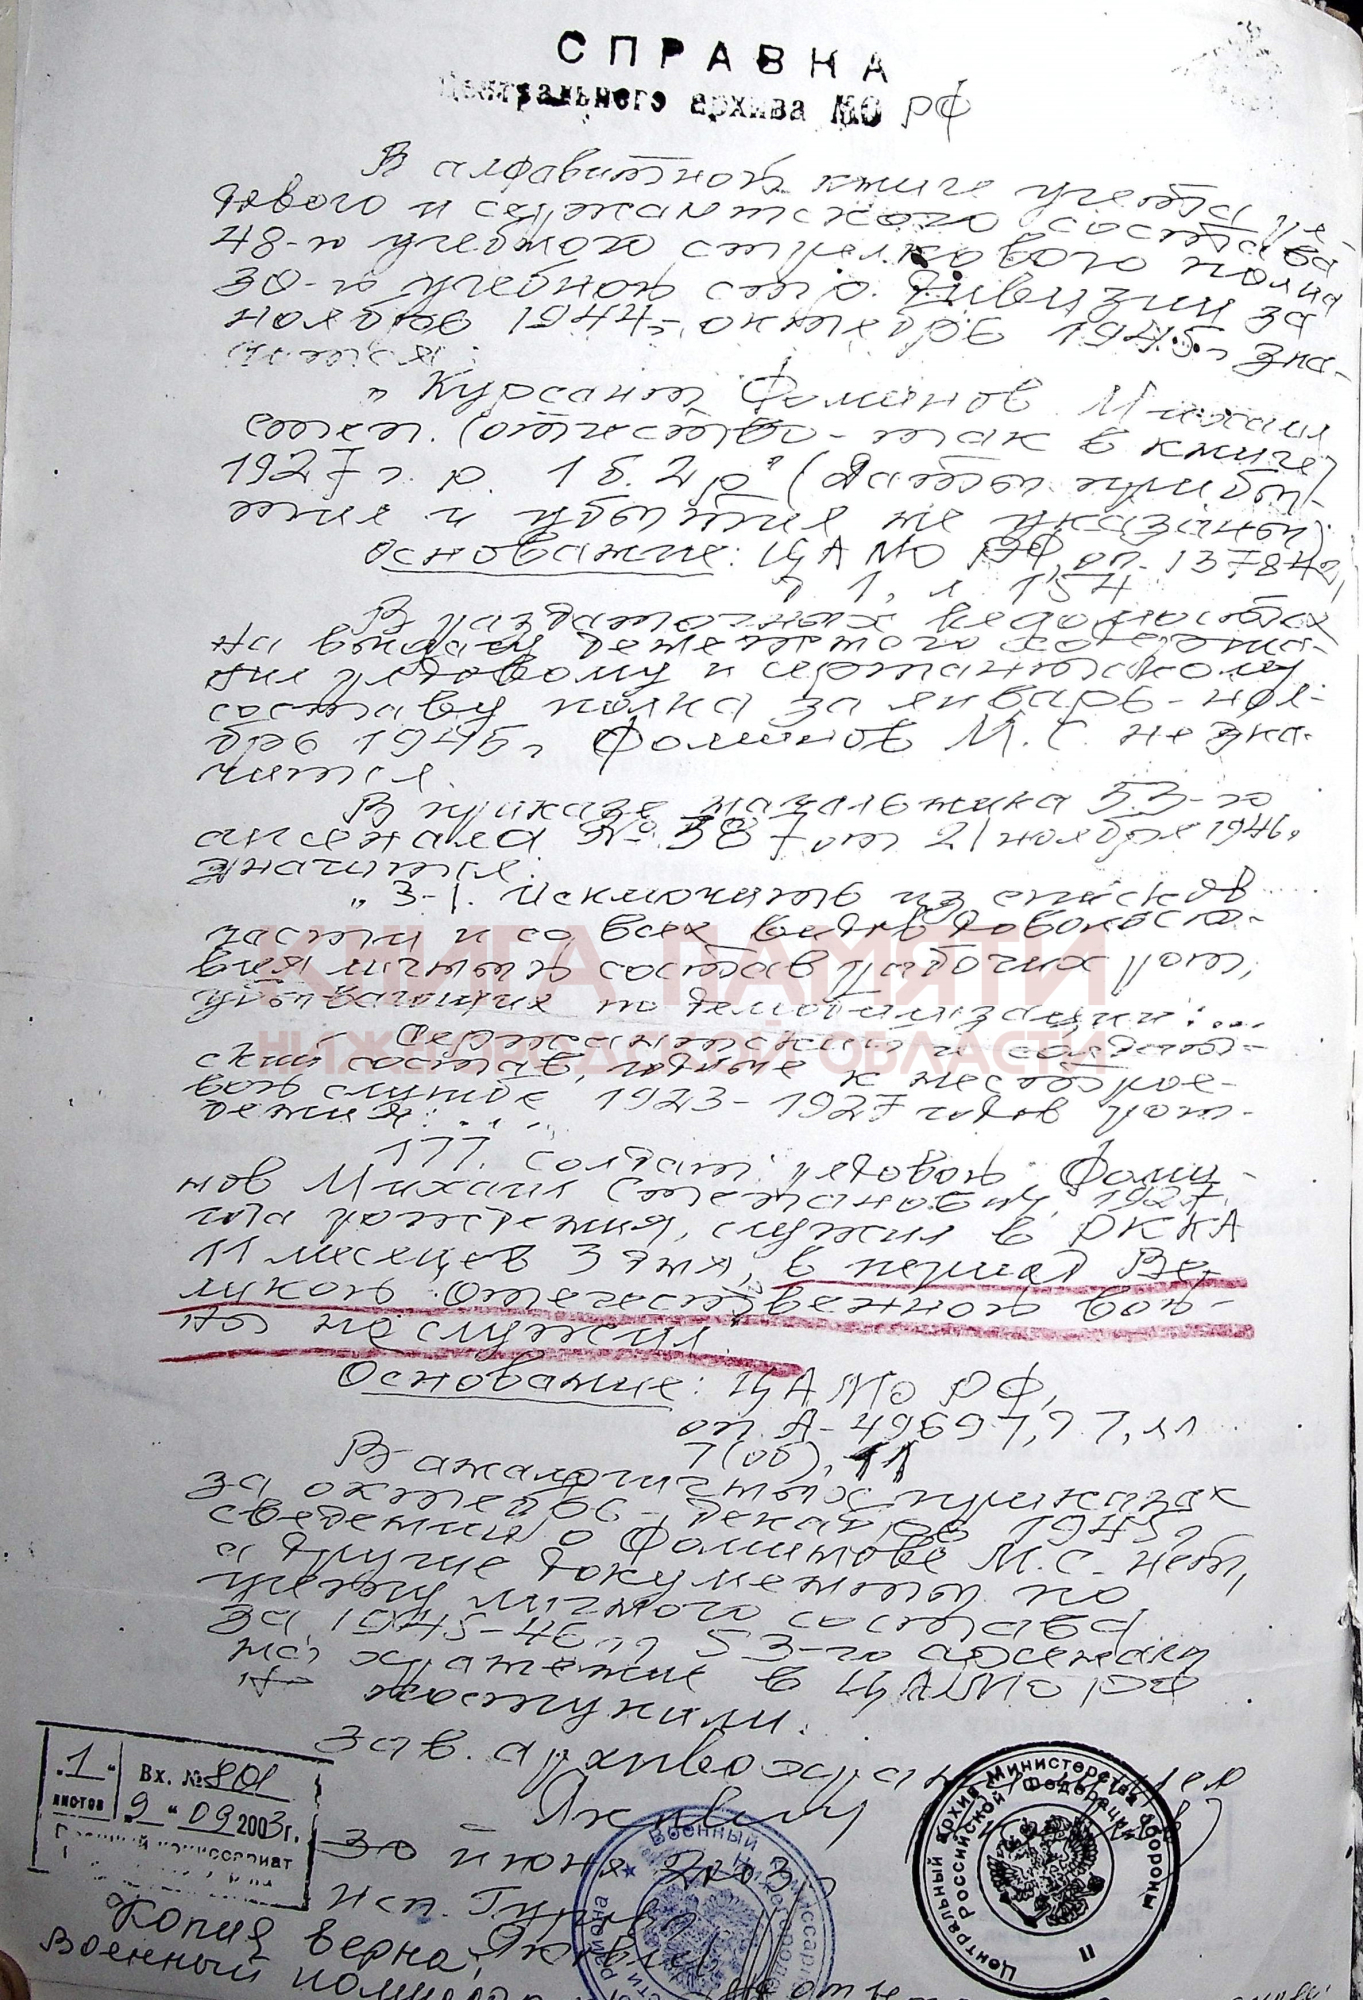 СПРАВКА
Центрального архива МО РФ
В алфавитной книге учета ря-
дового и сержантского состава
48-го учебного стрелкового полка
30-й учебной стр. дивизии за
ноябрь 1944-октябрь 1945г зна-
чится:
"Курсант Фоминов Михаил
Степ. (отчество - так в книге)
1927 г.р. 1б. 2р" (даты прибы-
тия и убытия не указаны).
Основание: ЦАМО РФ, оп. 137842,
д 1, л 154
В раздаточных ведомостях
на выдачу денежного содержа-
ния рядовому и сержантскому
составу полка за январь-ноя-
брь 1945г Фоминов М.С. не зна-
чится.
В приказе начальника 53-го
арсенала № 387 от 21 ноября 1946г
значится:
"З-1. Исключить из списков
части и со всех видов довольст-
вия личный состав рабочих рот,
убывающие по демобилизации:...
Сержантский и солдат-
ский состав, годные к нестрое-
вой службе 1923-1927 годов рож-
дения: ...
177. солдат рядовой Фоми-
нов Михаил Степанович, 1927
года рождения, служил в РККА
11 месяцев 3 дня, в период Ве-
ликой Отечественной вой-
ны не служил."
Основание: ЦАМО РФ,
оп. А-49697, д 7, лл
7(об), 11
В аналогичных приказах
за октябрь-декабрь 1945г
сведений о Фоминове М.С. нет,
а другие документы по
учету личного состава
за 1945-46гг 53-го арсенала
на хранение в ЦАМО РФ
не поступили.
Зав. архивохранилищем
30 июня 2003г
Исп.
Копия верна:
Военный
1 листов
Вх. № 801
"9" 09 2003г.
Военный комиссариат
Центральный архив Министерства обороны
Российской Федерации
11
Военный комиссариат
района
КНИГА ПАМЯТИ
НИЖЕГОРОДСКОЙ ОБЛАСТИ